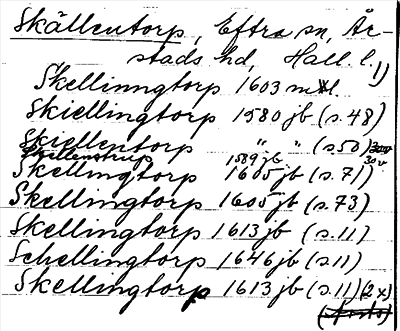 Skällentorp, Eftra sn, År-
stads hd, Hall. l. 1)
Skellinngtorp 1603 ml.
Skiellingtorp 1580 jb (s. 48)
Skiellentorp " " (s. 50)
Skellenstrup 1589 jb 30v
Skellingtorp 1605 jb (s. 71)
Skellingtorp 1605 jb (s. 73)
Skellingtorp 1613 jb (s. 11)
Schellingtorp 1646 jb (s. 11)
Skellingtorp 1613 jb (s. 11) (2 x)